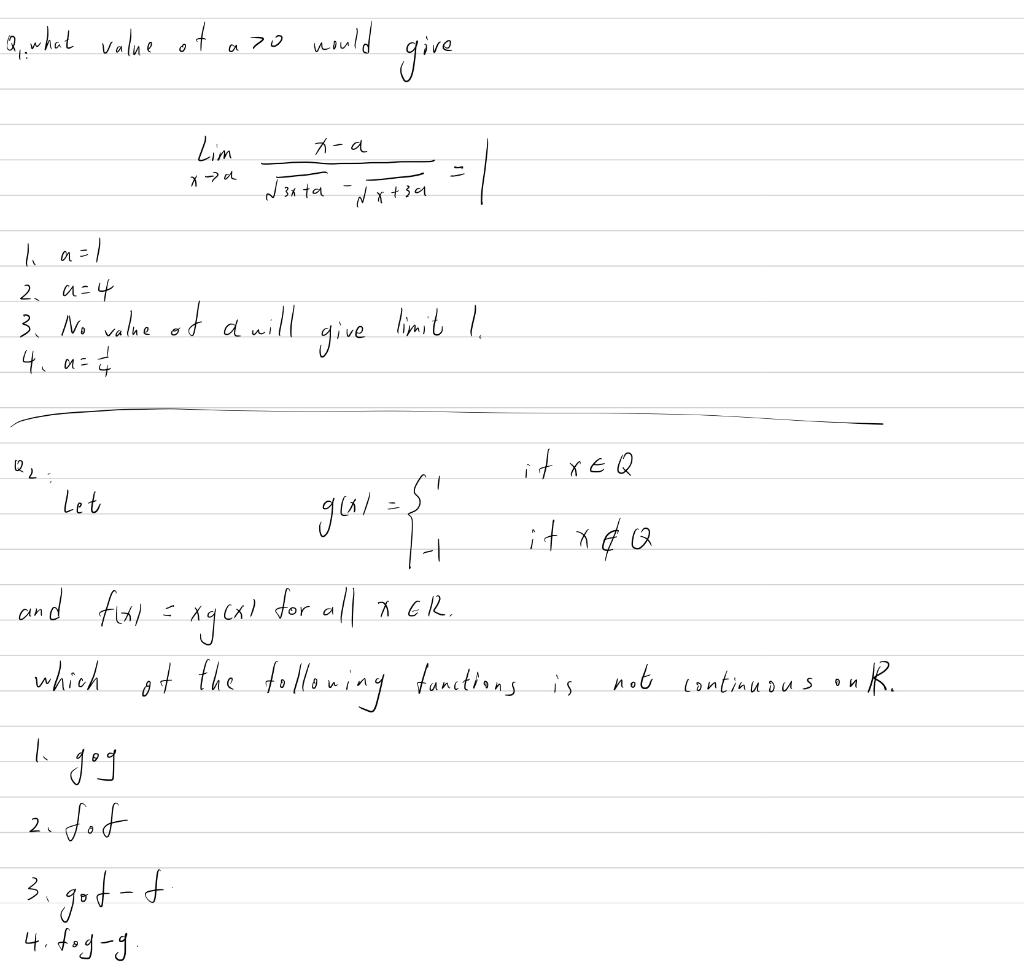 Q1: what value of a>0 would give
Lim x→a (x-a)/(√3x+a - √x+3a) = 1
1. a=1
2. a=4
3. No value of a will give limit 1.
4. a=1/4
Q2:
Let g(x) = { 1 if x∈Q
-1 if x∉Q
and f(x) = xg(x) for all x∈R.
which of the following functions is not continuous on R.
1. gog
2. fof
3. gof-f.
4. fog-g.